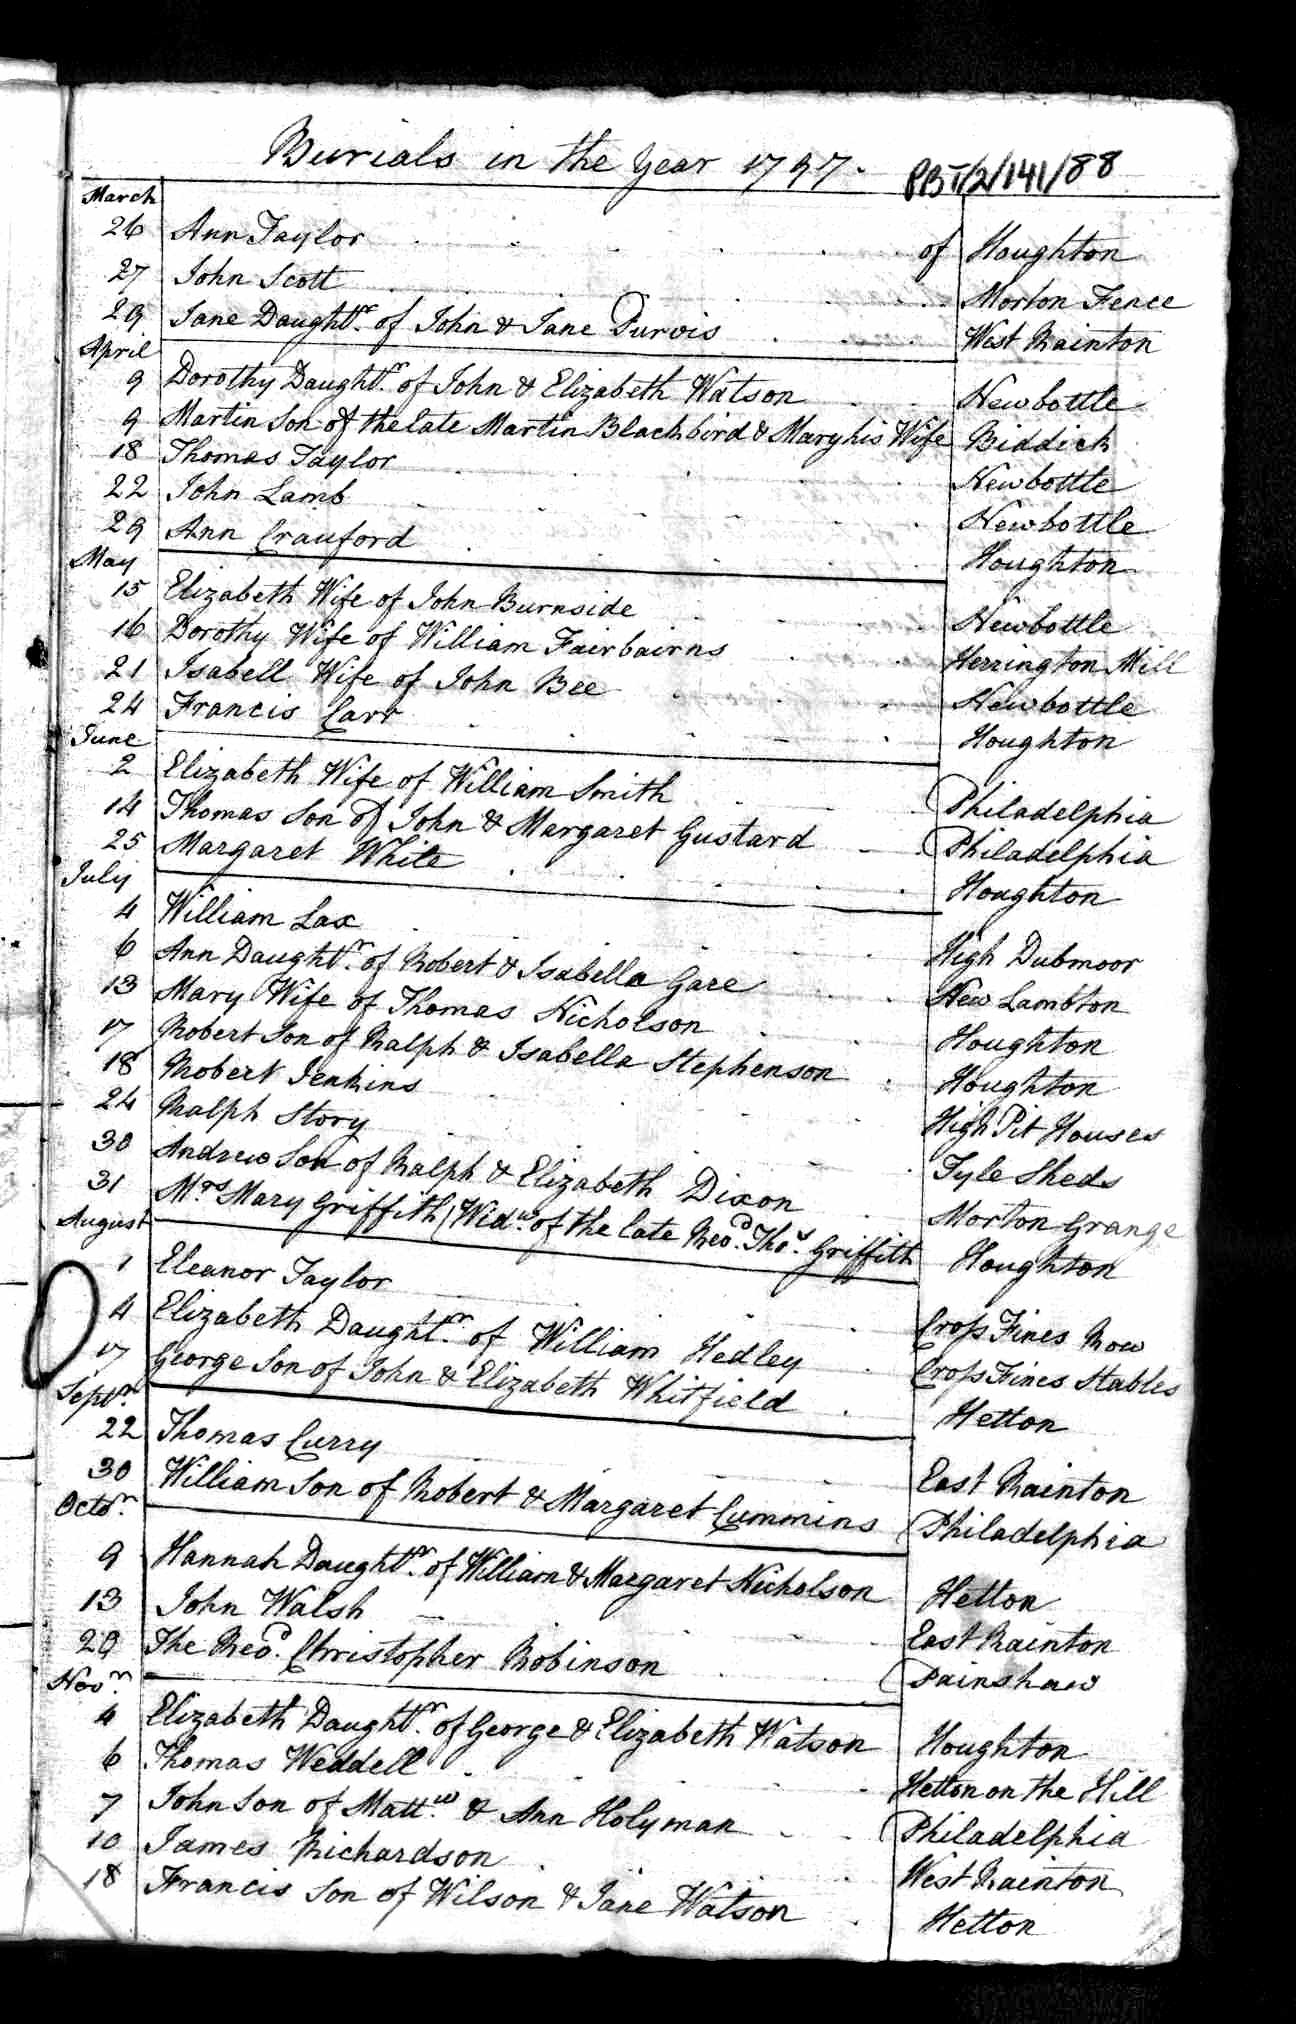 Burials in the Year 1797.
PBT/2/141/88
March
26 Ann Taylor of Houghton
27 John Scott Morton Fence
29 Jane Daughtr. of John & Jane Purvis West Rainton
April
9 Dorothy Daughtr. of John & Elizabeth Watson Newbottle
9 Martin Son of the late Martin Blackbird & Mary his Wife Biddick
18 Thomas Taylor Newbottle
22 John Lamb Newbottle
29 Ann Crauford Houghton
May
15 Elizabeth Wife of John Burnside Newbottle
16 Dorothy Wife of William Fairbairns Herrington Mill
21 Isabell Wife of John Bee Newbottle
24 Francis Carr Houghton
June
2 Elizabeth Wife of William Smith Philadelphia
14 Thomas Son of John & Margaret Gustard Philadelphia
25 Margaret White Houghton
July
4 William Lax High Dubmoor
6 Ann Daughtr. of Robert & Isabella Gare New Lambton
13 Mary Wife of Thomas Nicholson Houghton
17 Robert Son of Ralph & Isabella Stephenson Houghton
18 Robert Jenkins High Pit Houses
24 Ralph Story Tyle Sheds
30 Andrew Son of Ralph & Elizabeth Dixon Morton Grange
31 Mrs Mary Griffith (Widw. of the late Revd. Thos. Griffith Houghton
August
1 Eleanor Taylor Cross Fines Row
4 Elizabeth Daughtr. of William Hedley Cross Fines Stables
17 George Son of John & Elizabeth Whitfield Hetton
Septr.
22 Thomas Curry East Rainton
30 William Son of Robert & Margaret Cummins Philadelphia
Octor.
9 Hannah Daughtr. of William & Margaret Nicholson Hetton
13 John Walsh East Rainton
29 The Revd. Christopher Robinson Painshaw
Novr.
4 Elizabeth Daughtr. of George & Elizabeth Watson Houghton
6 Thomas Weddell Hetton on the Hill
7 John Son of Mattw. & Ann Holyman Philadelphia
10 James Richardson West Rainton
18 Francis Son of Wilson & Jane Watson Hetton